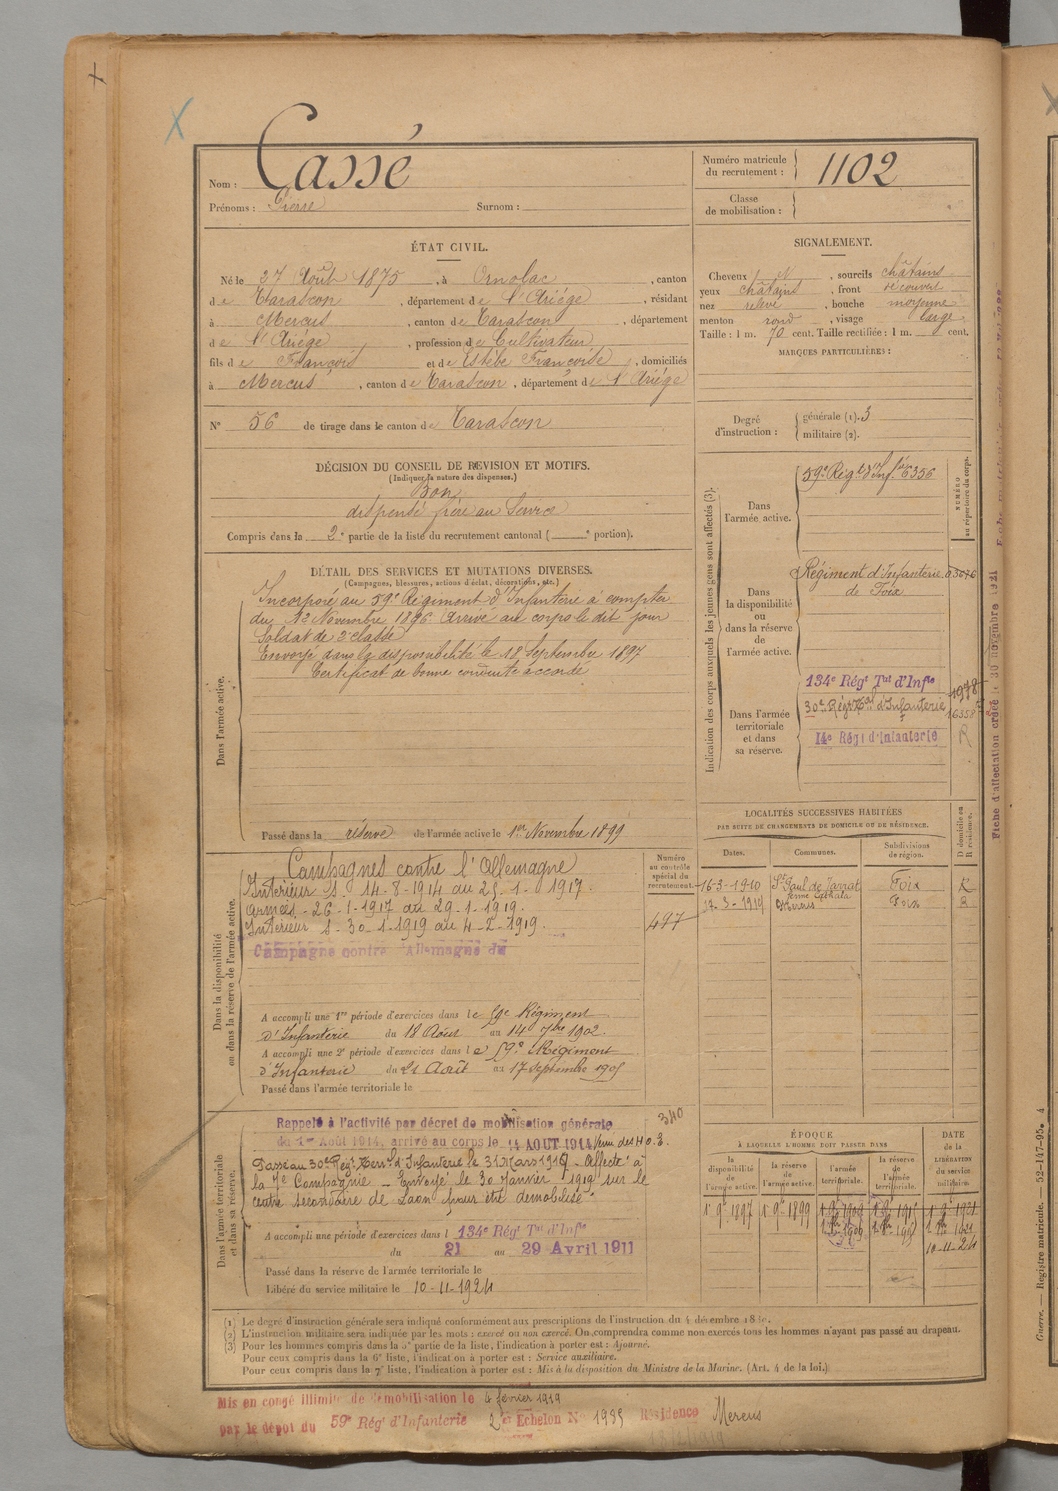 Nom : Cassé
Prénoms : Pierre Surnom :
Numéro matricule du recrutement : 1102
Classe de mobilisation :
ÉTAT CIVIL.
Né le 27 Août 1875, à Ornolac, canton
de Tarascon, département de l'Ariége, résidant
à Mercus, canton de Tarascon, département
de l'Ariége, profession de Cultivateur
fils de François et de Estèbe Françoise, domiciliés
à Mercus, canton de Tarascon, département de l'Ariége
N° 56 de tirage dans le canton de Tarascon
SIGNALEMENT.
Cheveux N, sourcils châtains
yeux châtains, front découvert
nez relevé, bouche moyenne
menton rond, visage large
Taille : 1 m. 70 cent. Taille rectifiée : 1 m. cent.
MARQUES PARTICULIÈRES :
Degré d'instruction : générale (1). 3
militaire (2).
DÉCISION DU CONSEIL DE REVISION ET MOTIFS.
(Indiquer la nature des dispenses.)
Bon
dispensé frère au Service
Compris dans la 2e partie de la liste du recrutement cantonal ( e portion).
DÉTAIL DES SERVICES ET MUTATIONS DIVERSES.
(Campagnes, blessures, actions d'éclat, décorations, etc.)
Dans l'armée active.
Incorporé au 59e Régiment d'Infanterie à compter
du 12 Novembre 1896. Arrivé au corps le dit jour
Soldat de 2e classe
Envoyé dans la disponibilité le 18 Septembre 1897
Certificat de bonne conduite accordé
Passé dans la réserve de l'armée active le 1er Novembre 1899
Indication des corps auxquels les jeunes gens sont affectés (3).
NUMÉRO au répertoire du corps.
Dans l'armée active.
59e Régt d'Inf. 6356
Dans la disponibilité ou dans la réserve de l'armée active.
Régiment d'Infanterie 03676
de Foix
Dans l'armée territoriale et dans sa réserve.
134e Régt Tal d'Infie 1978
30e Régt Tal d'Infanterie 16358
14e Régt d'Infanterie R
Dans la disponibilité ou dans la réserve de l'armée active.
Campagnes contre l'Allemagne
Intérieur S. 14-8-1914 au 25-1-1917.
Armées - 26-1-1917 au 29-1-1919.
Intérieur S. 30-1-1919 au 4-2-1919.
Campagne contre l'Allemagne du
Numéro au contrôle spécial du recrutement.
497
A accompli une 1re période d'exercices dans le 59e Régiment
d'Infanterie du 18 Août au 14 7bre 1902.
A accompli une 2e période d'exercices dans le 59e Régiment
d'Infanterie du 21 Août au 17 Septembre 1905
Passé dans l'armée territoriale le
LOCALITÉS SUCCESSIVES HABITÉES
PAR SUITE DE CHANGEMENTS DE DOMICILE OU DE RÉSIDENCE.
Dates. Communes. Subdivisions de région. D domicile ou R résidence.
16-3-1910 St Paul de Jarrat Foix R
Mercus Foix R
Dans l'armée territoriale et dans sa réserve.
340
Rappelé à l'activité par décret de mobilisation générale
du 1er Août 1914, arrivé au corps le 14 AOUT 1914
Passé au 30e Régt Terrl d'Infanterie le 31 Mars 1917 - Affecté à
la 7e Compagnie - Envoyé le 30 Janvier 1919 sur le
centre secondaire de Laon pour être démobilisé.
A accompli une période d'exercices dans l 134e Régt Tal d'Infie
du 21 au 29 Avril 1911
Passé dans la réserve de l'armée territoriale le
Libéré du service militaire le 10-11-1924
ÉPOQUE
À LAQUELLE L'HOMME DOIT PASSER DANS
la disponibilité de l'armée active. la réserve de l'armée active. l'armée territoriale. la réserve de l'armée territoriale. DATE de la LIBÉRATION du service militaire.
1e 9e 1897 1e 9e 1899 1e 9e 1909 1e 9e 1915 1e 9e 1921
10-11-24
(1) Le degré d'instruction générale sera indiqué conformément aux prescriptions de l'instruction du 4 décembre 1889.
(2) L'instruction militaire sera indiquée par les mots : exercé ou non exercé. On comprendra comme non exercés tous les hommes n'ayant pas passé au drapeau.
(3) Pour les hommes compris dans la 5e partie de la liste, l'indication à porter est : Ajourné.
Pour ceux compris dans la 6e liste, l'indication à porter est : Service auxiliaire.
Pour ceux compris dans la 7e liste, l'indication à porter est : Mis à la disposition du Ministre de la Marine. (Art. 4 de la loi.)
Mis en congé illimité de démobilisation le 4 février 1919
par le dépôt du 59e Régt d'Infanterie 2e Echelon N° 1935 Résidence Mercus
Fiche d'affectation créée le 30 novembre 1921
Guerre. — Registre matricule. — 52-147-95. 4